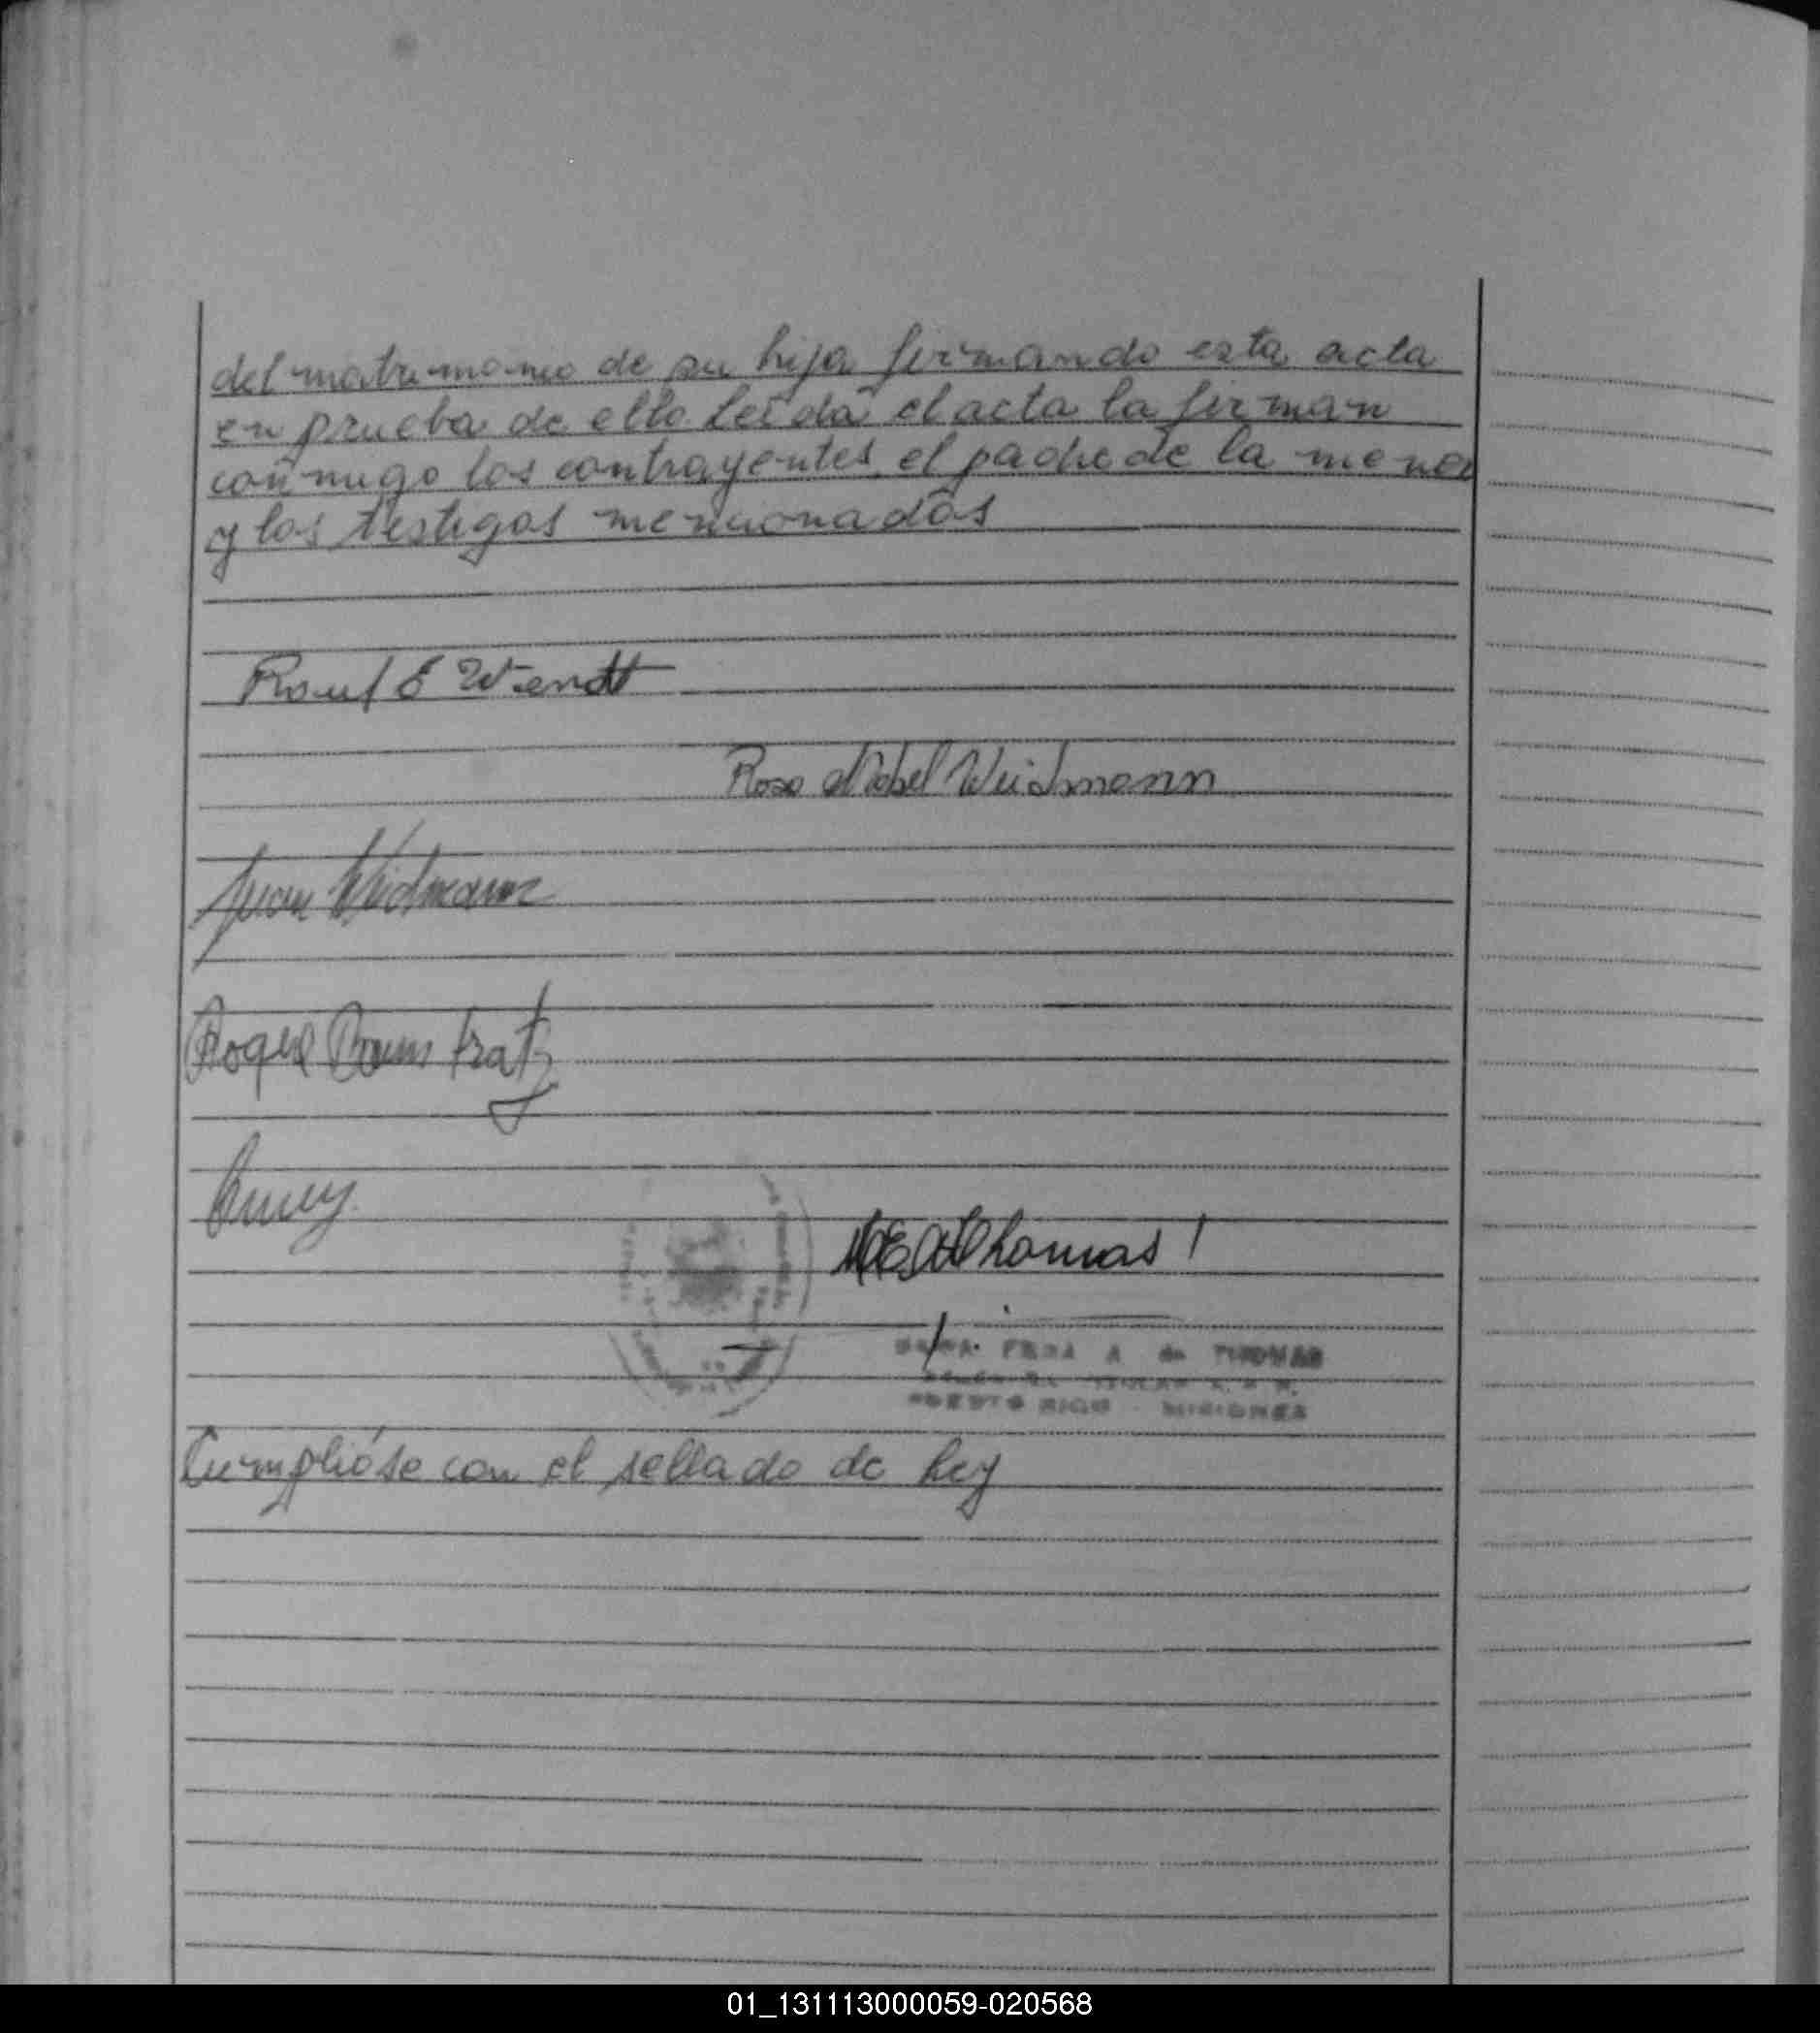 del matrimonio de su hija firmando esta acta
en prueba de ello. Leida el acta la firman
conmigo los contrayentes, el padre de la menor
y los testigos mencionados
Raul E Wendt
Rosa Mabel Weidmann
Juan Weidmann
Roque Braun
Thomas
A de THOMAS
PUERTO RICO - MISIONES
Cumplióse con el sellado de ley
01_131113000059-020568